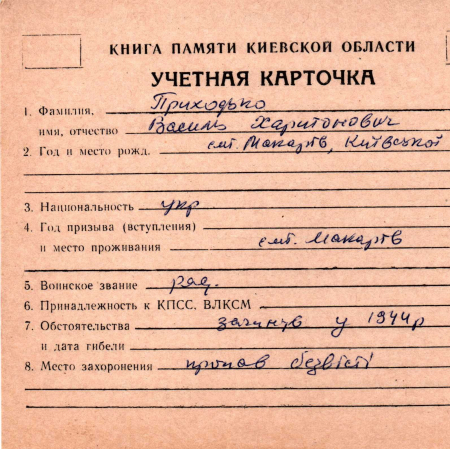 КНИГА ПАМЯТИ КИЕВСКОЙ ОБЛАСТИ
УЧЕТНАЯ КАРТОЧКА
1. Фамилия, Приходько
имя, отчество Василь Харитонович
2. Год и место рожд. смт. Макарів, Київської
3. Национальность укр
4. Год призыва (вступления)
и место проживания смт. Макарів
5. Воинское звание ряд.
6. Принадлежность к КПСС, ВЛКСМ
7. Обстоятельства загинув у 1944р
и дата гибели
8. Место захоронения пропав безвісті